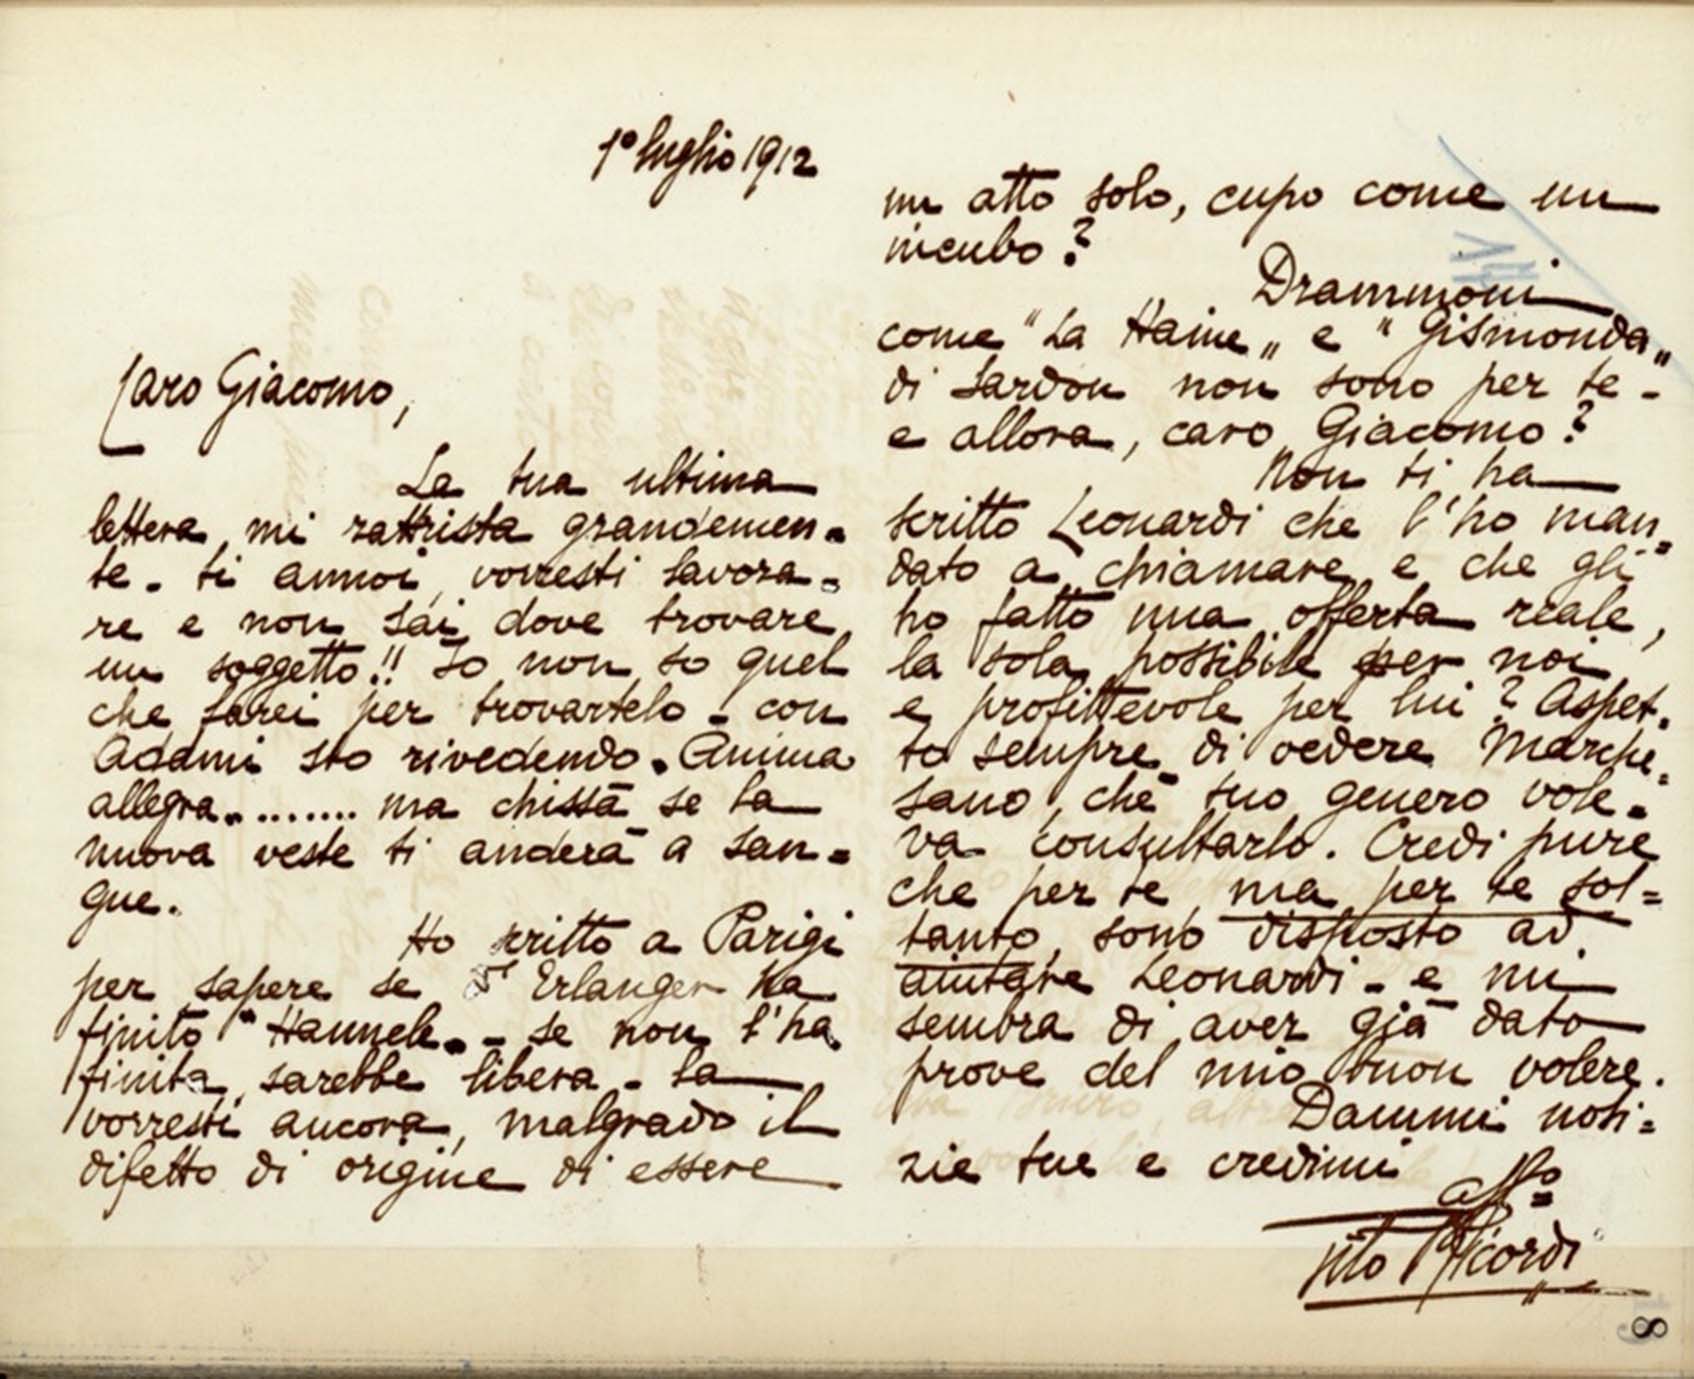 1° luglio 1912
Caro Giacomo,
La tua ultima
lettera mi rattrista grandemen=
te. ti annoi, vorresti lavora=
re e non sai dove trovare
un soggetto!! Io non so quel
che farei per trovartelo - con
Adami sto rivedendo "Anima
allegra"........ ma chissà se la
nuova veste ti anderà a san=
gue.
Ho scritto a Parigi
per sapere se Erlanger ha
finito "Hannele" - se non l'ha
finita, sarebbe libera - la
vorresti ancora, malgrado il
difetto di origine di essere
un atto solo, cupo come un
incubo?
Drammoni
come "La Haine" e "Gismonda"
di Sardou non sono per te -
e allora, caro Giacomo?
Non ti ha
scritto Leonardi che l'ho man=
dato a chiamare e che gli
ho fatto una offerta reale,
la sola possibile per noi
e profittevole per lui? Aspet=
to sempre di vedere Marche=
sano, chè tuo genero vole=
va consultarlo. Credi pure
che per te, ma per te sol=
tanto, sono disposto ad
aiutare Leonardi - e mi
sembra di aver già dato
prove del mio buon volere.
Dammi noti=
zie tue e credimi
aff°
Tito Ricordi
8